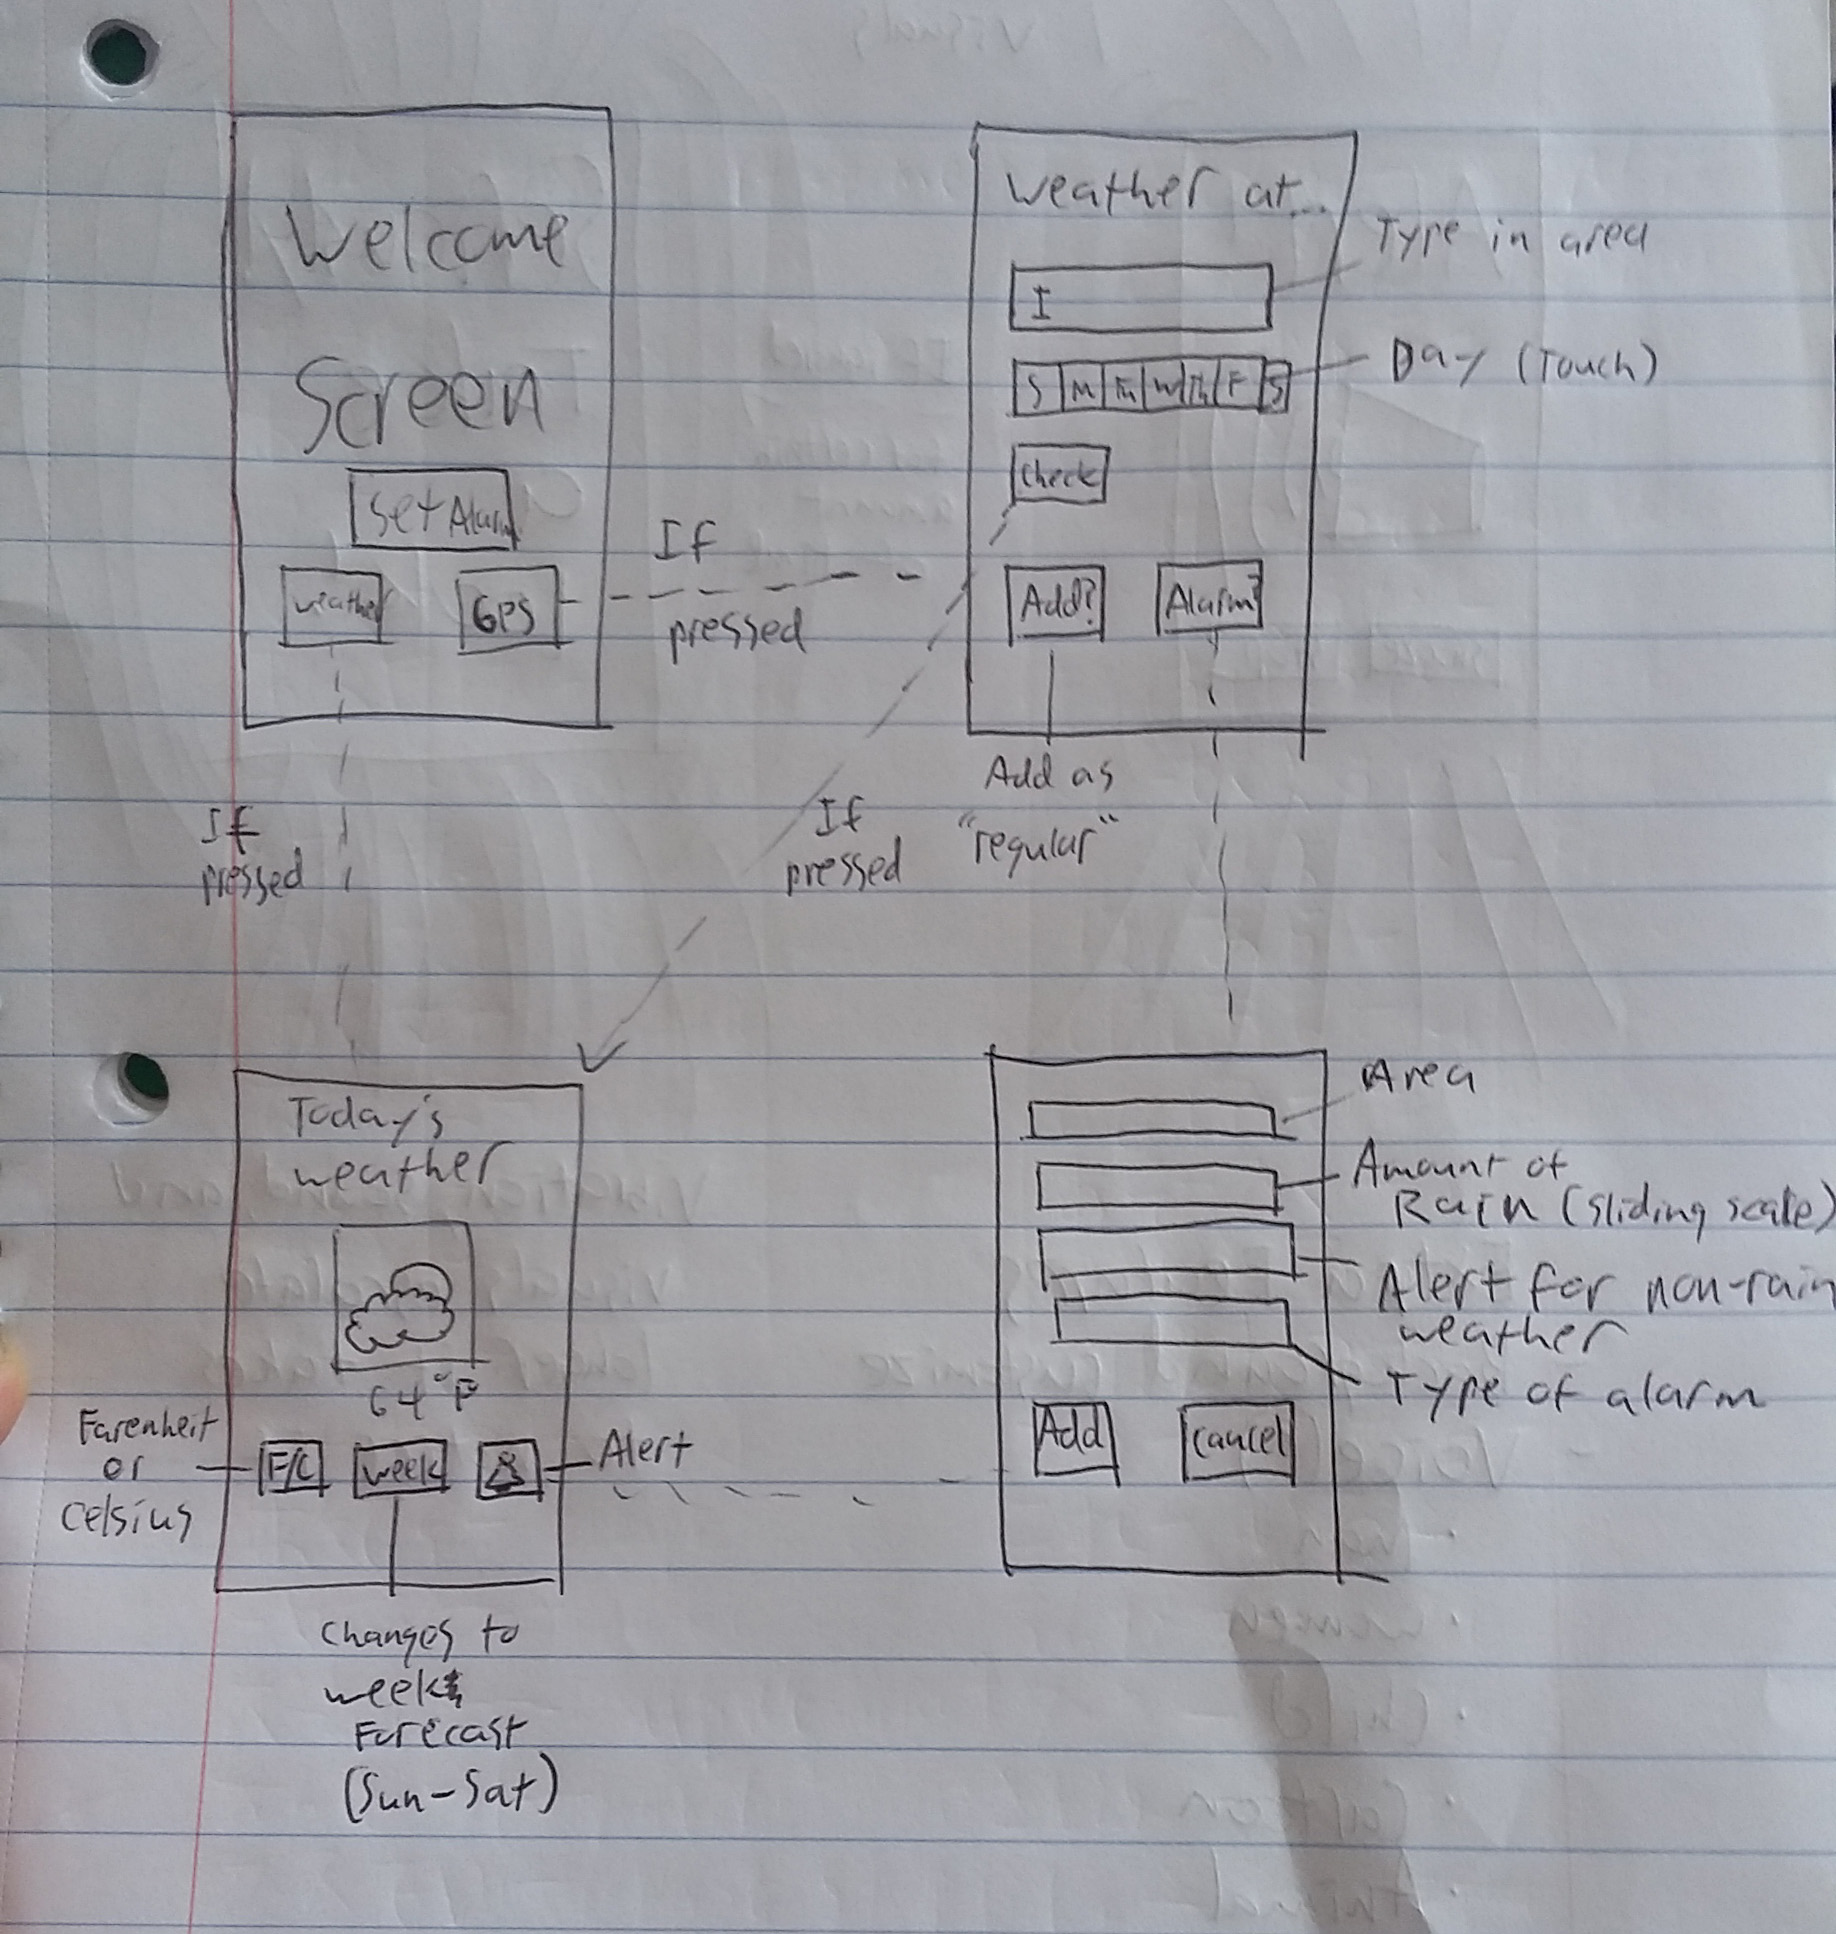 Welcome
Screen
Set Alarm
Weather
GPS
If
pressed
If
pressed
Weather at...
I
Type in area
S M Tu W Th F S
Day (Touch)
Check
Add?
Alarm?
Add as
"regular"
If
pressed
Today's
weather
64°F
F/C
week
Farenheit
or
Celsius
Alert
Changes to
week
Forecast
(Sun-Sat)
Area
Amount of
Rain (sliding scale)
Alert for non-rain
weather
Type of alarm
Add
Cancel